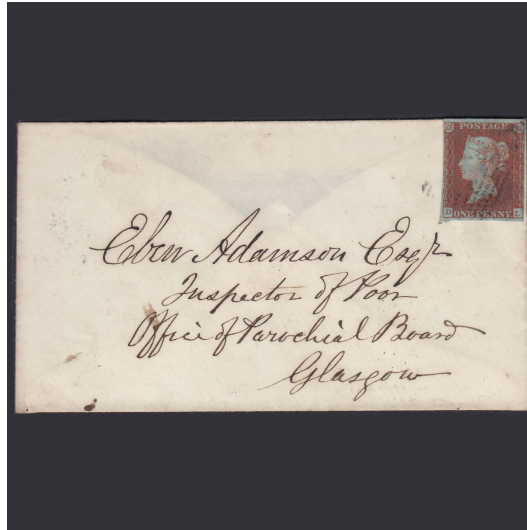 POSTAGE
ONE PENNY
Eben Adamson Esqr
Inspector of Poor
Office of Parochial Board
Glasgow